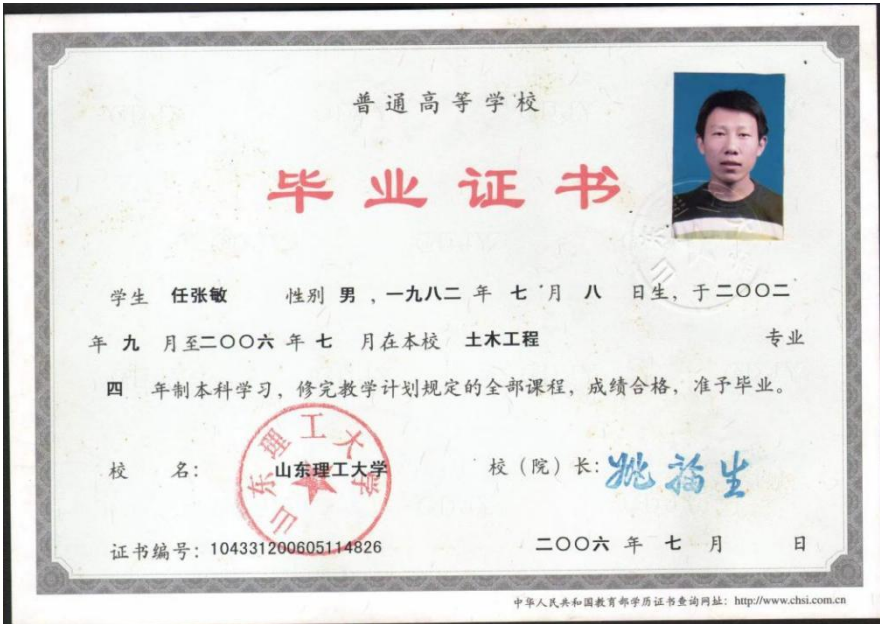 普通高等学校
毕业证书
学生 任张敏 性别 男 ,一九八二 年 七 月 八 日生, 于二〇〇二
年 九 月至二〇〇六 年 七 月在本校 土木工程 专业
四 年制本科学习, 修完教学计划规定的全部课程, 成绩合格, 准予毕业。
山东理工大学
校 名: 山东理工大学 校(院)长: 姚福生
证书编号: 104331200605114826 二〇〇六 年 七 月 日
中华人民共和国教育部学历证书查询网址: http://www.chsi.com.cn